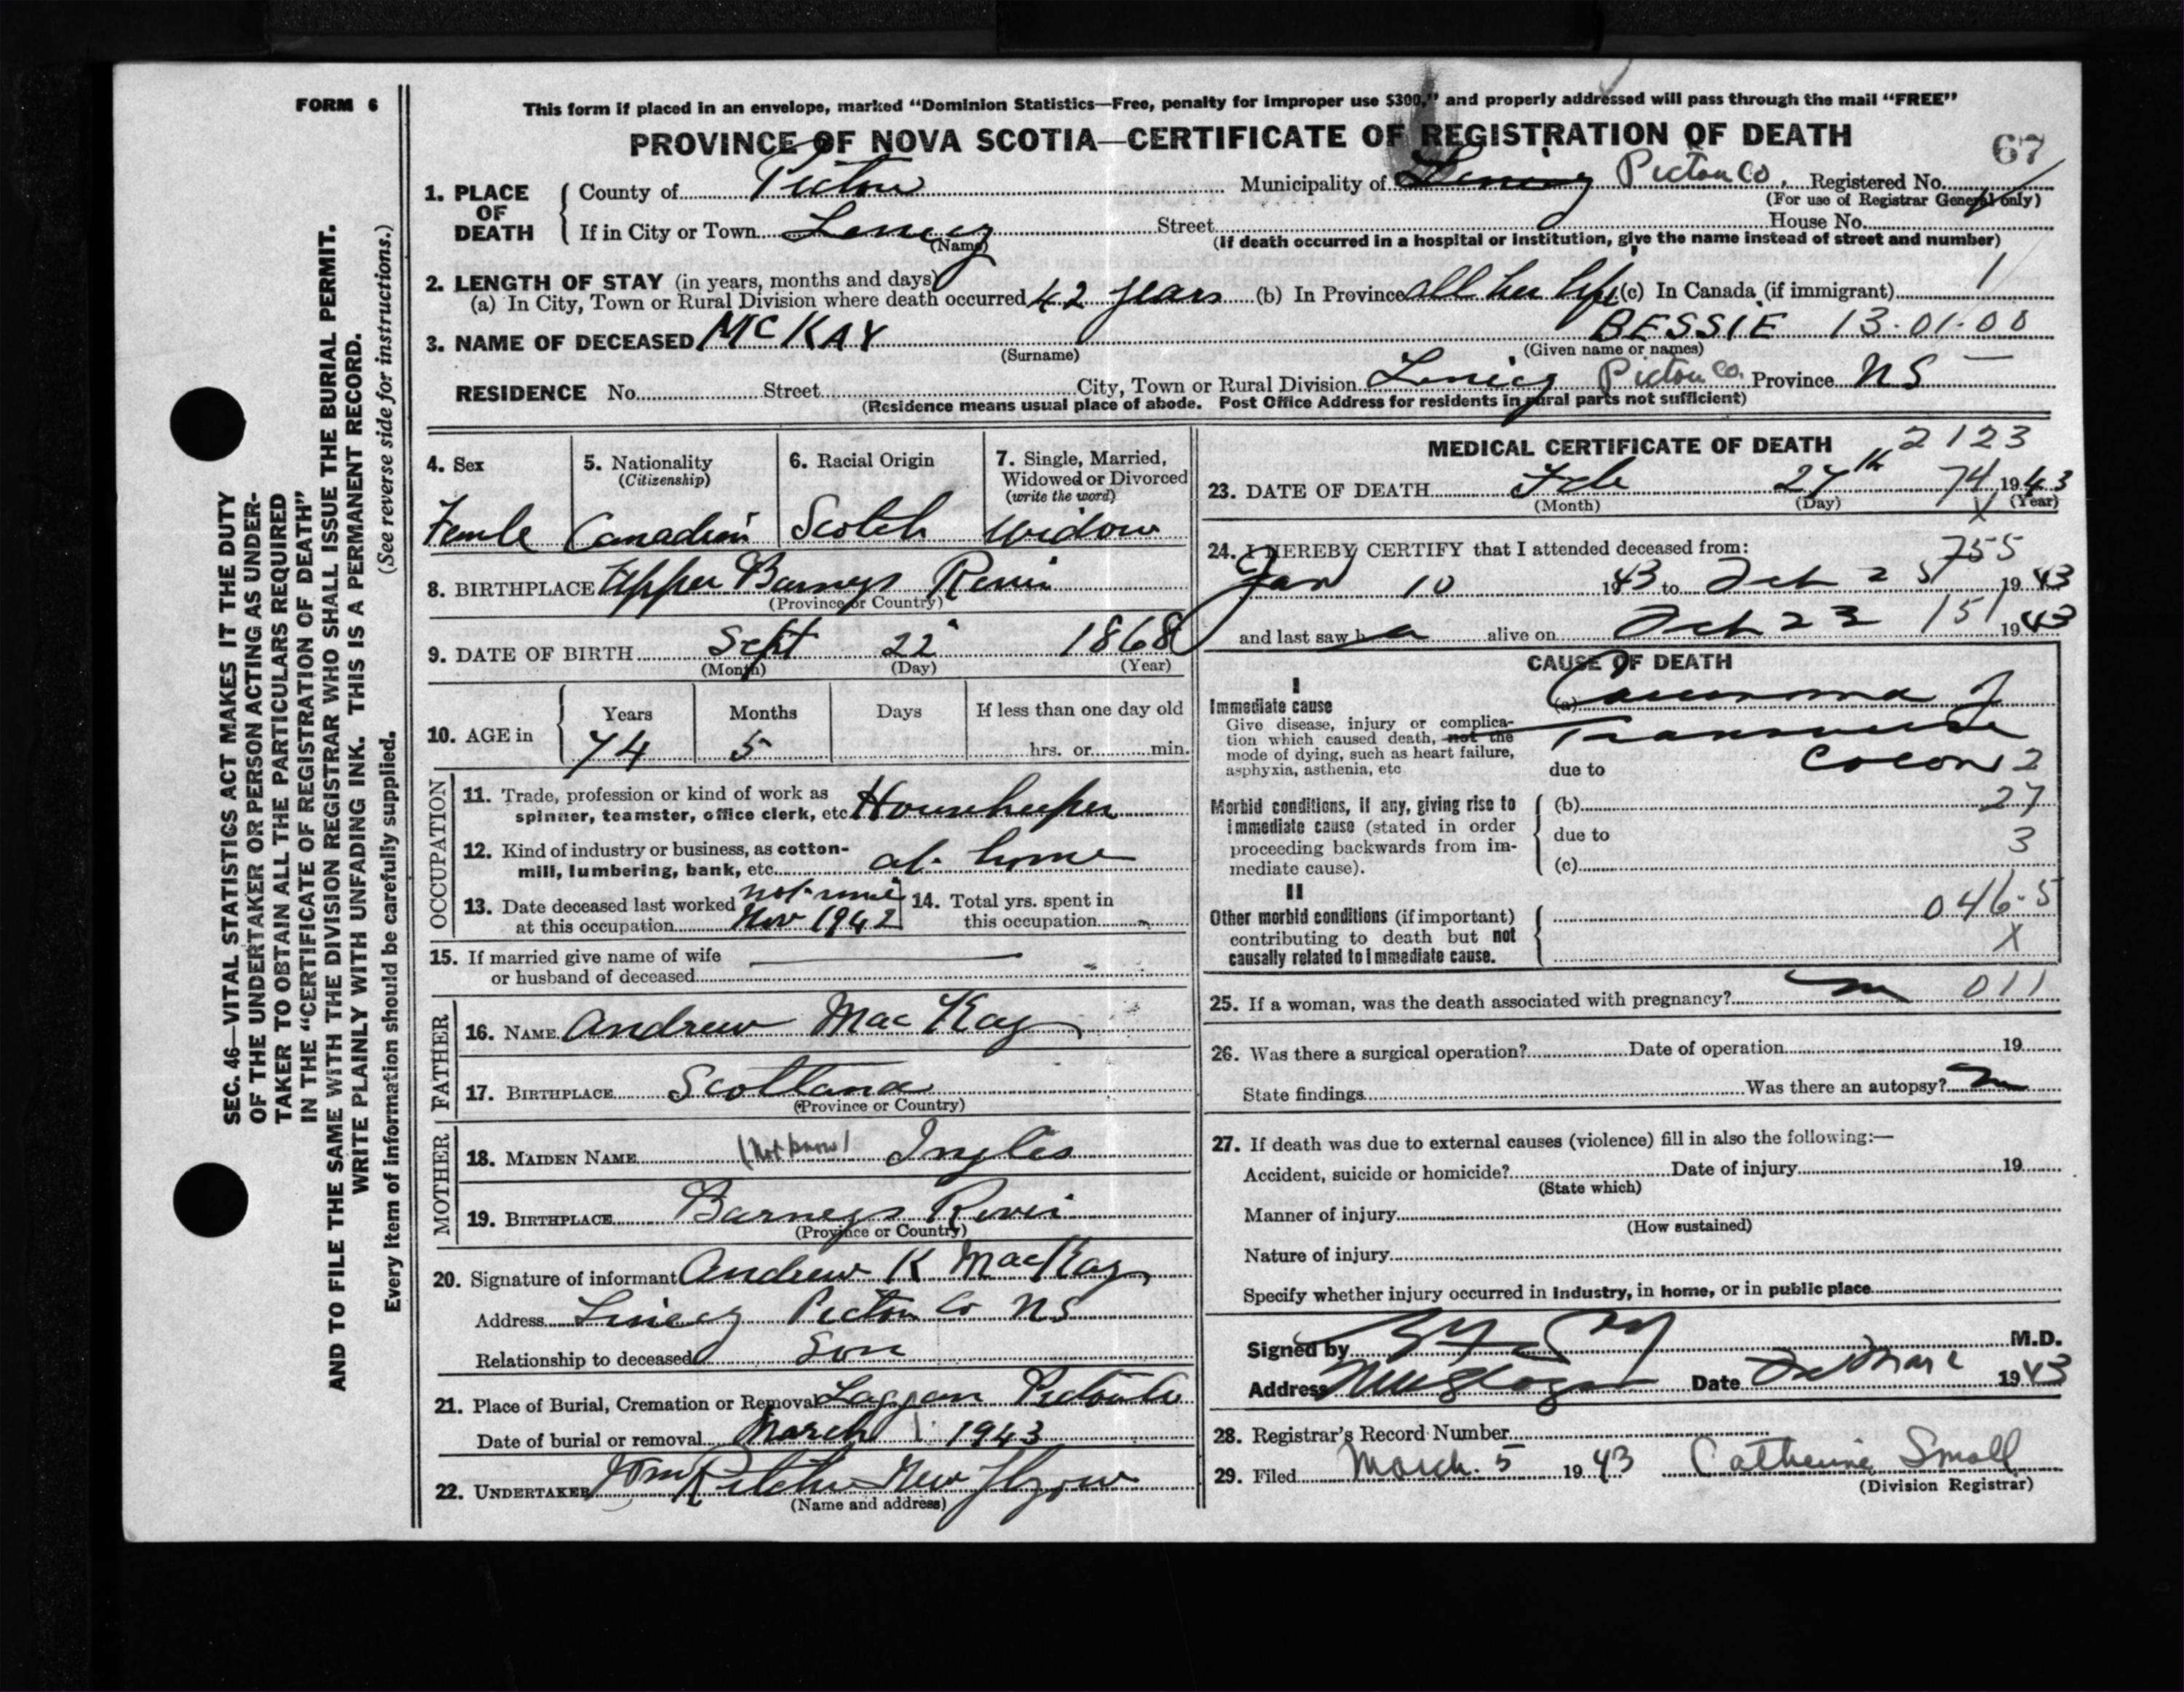 FORM 6
This form if placed in an envelope, marked “Dominion Statistics—Free, penalty for improper use $300,” and properly addressed will pass through the mail “FREE”
PROVINCE OF NOVA SCOTIA—CERTIFICATE OF REGISTRATION OF DEATH
67
SEC. 46—VITAL STATISTICS ACT MAKES IT THE DUTY
OF THE UNDERTAKER OR PERSON ACTING AS UNDER-
TAKER TO OBTAIN ALL THE PARTICULARS REQUIRED
IN THE “CERTIFICATE OF REGISTRATION OF DEATH”
AND TO FILE THE SAME WITH THE DIVISION REGISTRAR WHO SHALL ISSUE THE BURIAL PERMIT.
WRITE PLAINLY WITH UNFADING INK. THIS IS A PERMANENT RECORD.
Every item of information should be carefully supplied. (See reverse side for instructions.)
1. PLACE OF DEATH
County of Pictou Municipality of Pictou Co, Registered No.
(For use of Registrar General only)
If in City or Town Street House No.
(Name) (If death occurred in a hospital or institution, give the name instead of street and number)
2. LENGTH OF STAY (in years, months and days)
(a) In City, Town or Rural Division where death occurred 42 years (b) In Province all her life (c) In Canada (if immigrant) 1
3. NAME OF DECEASED McKAY BESSIE 13·01·00
(Surname) (Given name or names)
RESIDENCE No. Street City, Town or Rural Division Pictou Co. Province NS
(Residence means usual place of abode. Post Office Address for residents in rural parts not sufficient)
4. Sex
Femle
5. Nationality
(Citizenship)
Canadien
6. Racial Origin
Scotch
7. Single, Married,
Widowed or Divorced
(write the word)
Widow
8. BIRTHPLACE Upper Barneys River
(Province or Country)
9. DATE OF BIRTH Sept 22 1868
(Month) (Day) (Year)
10. AGE in
Years Months Days If less than one day old
74 5 hrs. or min.
OCCUPATION
11. Trade, profession or kind of work as
spinner, teamster, office clerk, etc. Housekeeper
12. Kind of industry or business, as cotton-
mill, lumbering, bank, etc. at home
13. Date deceased last worked
at this occupation Nov 1942
14. Total yrs. spent in
this occupation
15. If married give name of wife
or husband of deceased
FATHER
16. NAME Andrew MacKay
17. BIRTHPLACE Scotland
(Province or Country)
MOTHER
18. MAIDEN NAME (Not know) Inglis
19. BIRTHPLACE Barneys River
(Province or Country)
20. Signature of informant Andrew K MacKay
Address Pictou Co NS
Relationship to deceased Son
21. Place of Burial, Cremation or Removal Laggan Pictou Co
Date of burial or removal March 1 1943
22. UNDERTAKER New Glasgow
(Name and address)
MEDICAL CERTIFICATE OF DEATH 2123
23. DATE OF DEATH Feb 27th 74 1943
(Month) (Day) (Year)
X
24. I HEREBY CERTIFY that I attended deceased from: 755
Jan 10 1943 to Feb 1943
and last saw h alive on Feb 23 151 1943
CAUSE OF DEATH
I
Immediate cause
Give disease, injury or complica-
tion which caused death, not the
mode of dying, such as heart failure,
asphyxia, asthenia, etc
(a) Carcinoma of
Transverse
due to Colon 2
Morbid conditions, if any, giving rise to
immediate cause (stated in order
proceeding backwards from im-
mediate cause).
(b) 27
due to
3
(c)
II
Other morbid conditions (if important)
contributing to death but not
causally related to immediate cause.
046·5
X
25. If a woman, was the death associated with pregnancy? no 011
26. Was there a surgical operation? Date of operation 19
State findings Was there an autopsy? no
27. If death was due to external causes (violence) fill in also the following:—
Accident, suicide or homicide? Date of injury 19
(State which)
Manner of injury
(How sustained)
Nature of injury
Specify whether injury occurred in industry, in home, or in public place
Signed by M.D.
Address New Glasgow Date 1943
28. Registrar's Record Number
29. Filed March 5 1943 Catherine Small
(Division Registrar)